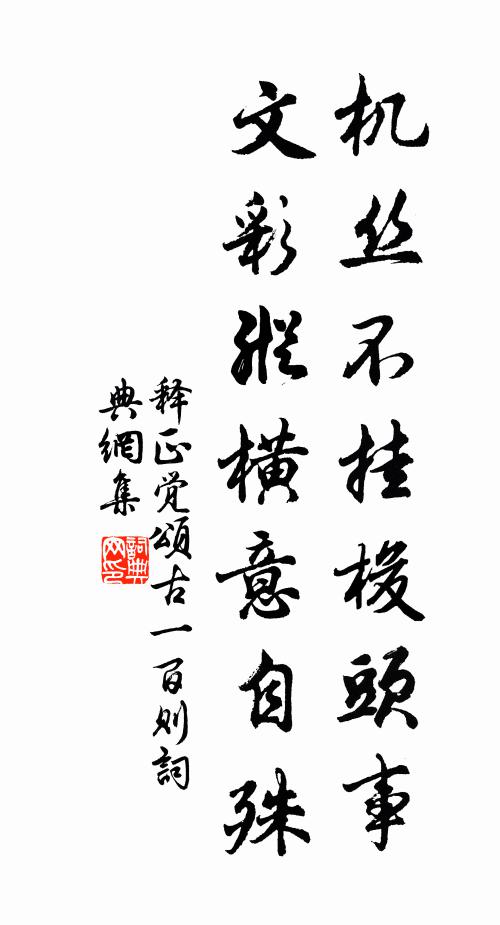 机丝不挂梭頭事
文彩縱橫意自殊
释正觉頌古一百则詞
典網集
詞典网印